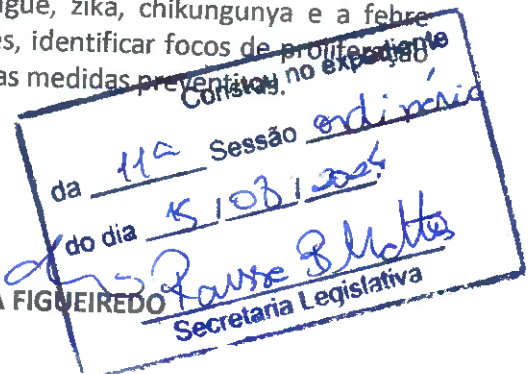 gue, zika, chikungunya e a febre
es, identificar focos de proliferação
as medidas preventivas.
Constou no expediente
da 11ª Sessão ordinária
do dia 15 / 03 / 2024
A FIGUEIREDO
Secretaria Legislativa